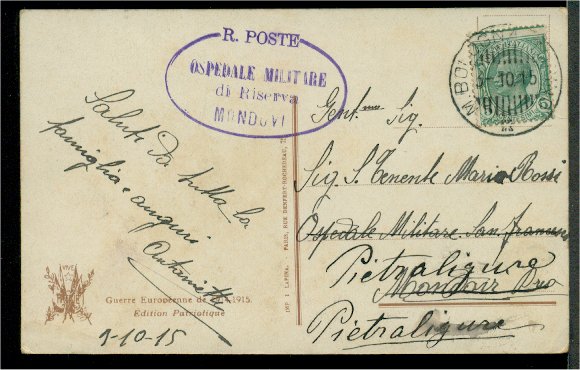 R. POSTE
OSPEDALE MILITARE
di Riserva
MONDOVI
M. BOLOGNA
9-10-15
Saluti da tutta la
famiglia e auguri
Antonietta
VIVE
Guerre Européenne de 1914-1915.
Edition Patriotique
9-10-15
IMP I LAPINA. PARIS, RUE DENFERT-ROCHEREAU, 75
Gent.mo Sig.
Sig. S. Tenente Mario Rossi
Ospedale Militare San Francesco
Pietraligure
Mondovì
Pietraligure